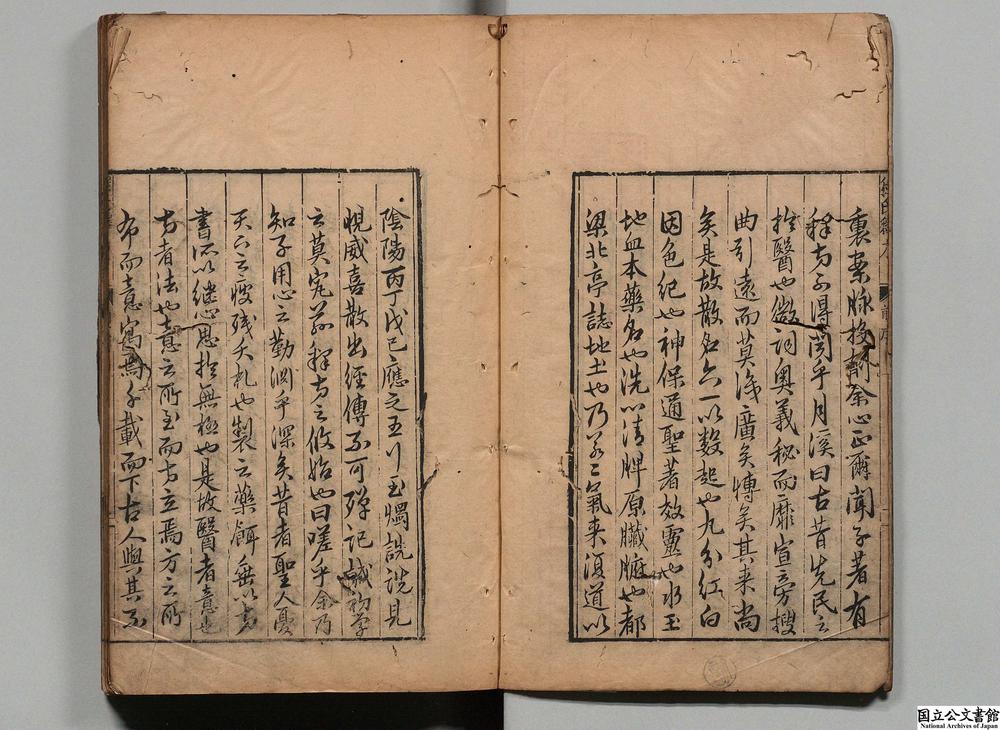 裏案脉投
心正爾聞子著有
釋方可得聞乎月溪曰古昔先民之
於醫也微詞奧義秘而靡宣旁搜
曲引遠而莫浅廣矣博矣其来尚
矣是故散名六一以数起也九分红白
因色纪也神保通聖著效靈也水玉
地血本藥名也洗心清脾原臟腑也都
梁北亭誌地土也乃若二氣来復道以
陰陽丙丁戊己應之五行玉燭詵詵見
恍威喜散出經傳不可殫記誠初學
之莫究兹釋方之攸始也曰嗟乎余乃
知子用心之勤渊乎深矣昔者聖人憂
天下之疲残夭札也製之藥餌垂以方
書所以继心思於無極也是故醫者意也
方者法也意之所至而方立焉方之所
布而意寓焉千載而下古人與其不
国立公文書館
National Archives of Japan